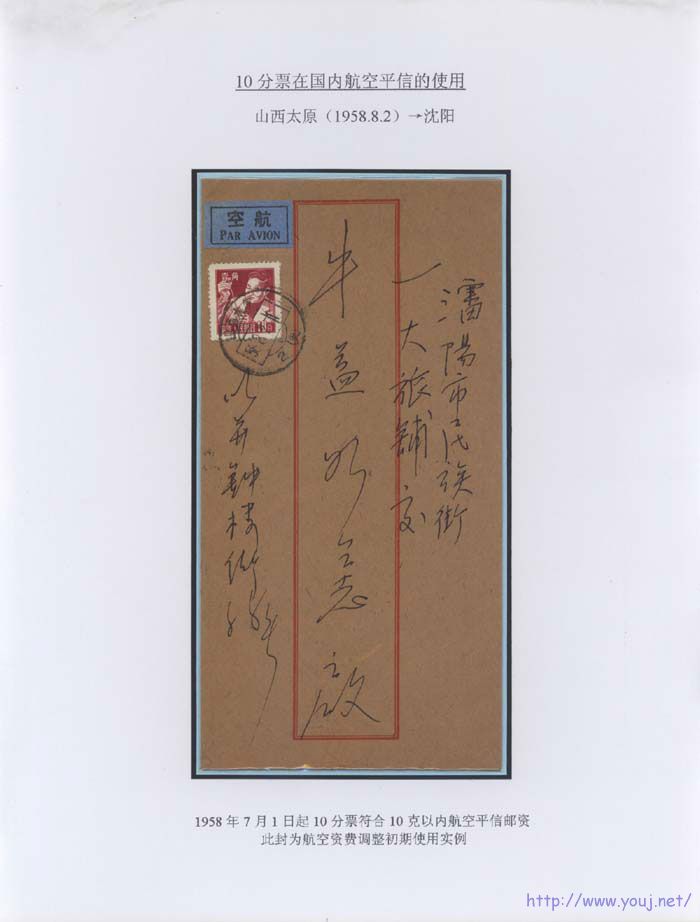 10 分票在国内航空平信的使用
山西太原（1958.8.2）→沈阳
空 航
PAR AVION
瀋陽市民族街
一大旅舖交
牛益 同志 啟
并鐘楼街
1958 年 7 月 1 日起 10 分票符合 10 克以内航空平信邮资
此封为航空资费调整初期使用实例
http://www.youj.net/